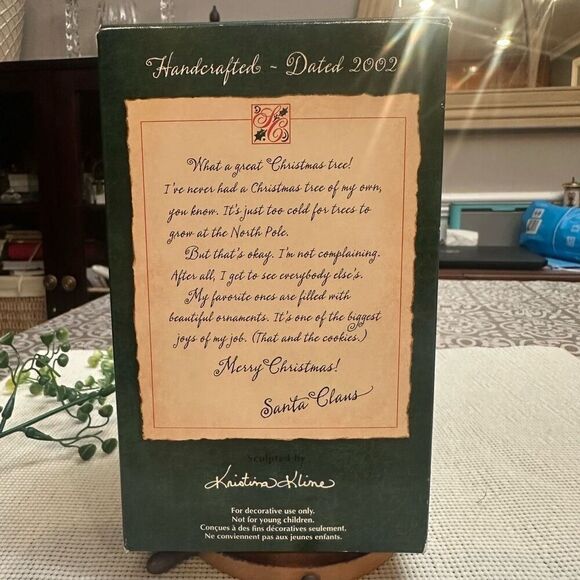 Handcrafted ~ Dated 2002
SC
What a great Christmas tree!
I've never had a Christmas tree of my own,
you know. It's just too cold for trees to
grow at the North Pole.
But that's okay. I'm not complaining.
After all, I get to see everybody else's.
My favorite ones are filled with
beautiful ornaments. It's one of the biggest
joys of my job. (That and the cookies.)
Merry Christmas!
Santa Claus
Sculpted by
Kristina Kline
For decorative use only.
Not for young children.
Conçues à des fins décoratives seulement.
Ne conviennent pas aux jeunes enfants.